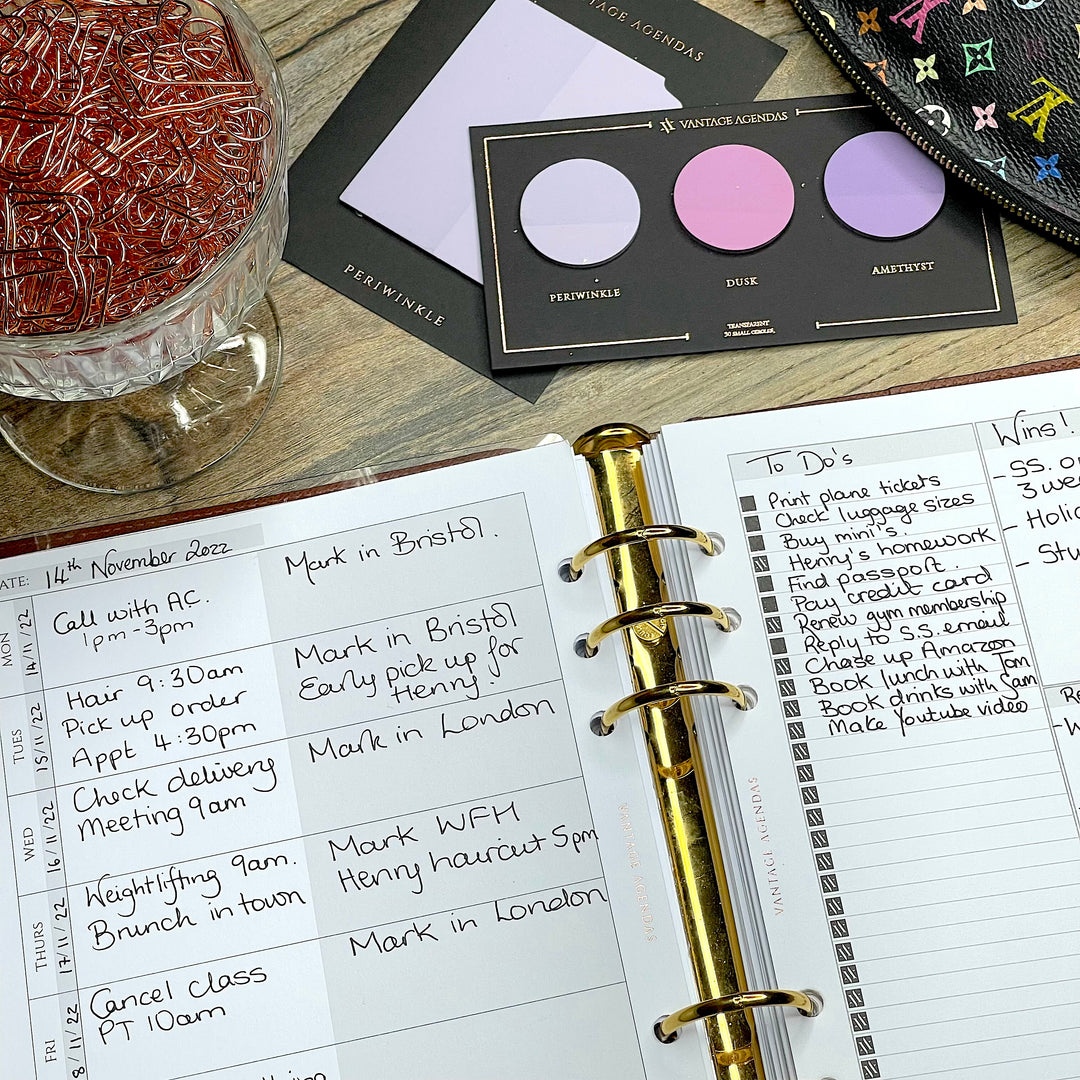 VANTAGE AGENDAS
PERIWINKLE
VANTAGE AGENDAS
PERIWINKLE
DUSK
AMETHYST
TRANSPARENT
DATE: 14th November 2022
MON 14/11/22
Call with AC.
1pm-3pm
Mark in Bristol.
TUES 15/11/22
Hair 9:30am
Pick up order
Appt 4:30pm
Mark in Bristol
Early pick up for
Henny.
WED 16/11/22
Check delivery
Meeting 9am
Mark in London
THURS 17/11/22
Weightlifting 9am.
Brunch in town
Mark WFH
Henny haircut 5pm
FRI 8/11/22
Cancel class
PT 10am
Mark in London
VANTAGE AGENDAS
To Do's
Print plane tickets
Check luggage sizes
Buy mini's.
Henny's homework
Find passport.
Pay credit card
Renew gym membership
Reply to S.S. email
Chase up Amazon
Book lunch with Tom
Book drinks with Sam
Make Youtube video
VANTAGE AGENDAS
Wins!
- SS. o
3 we
- Holi
- Stu